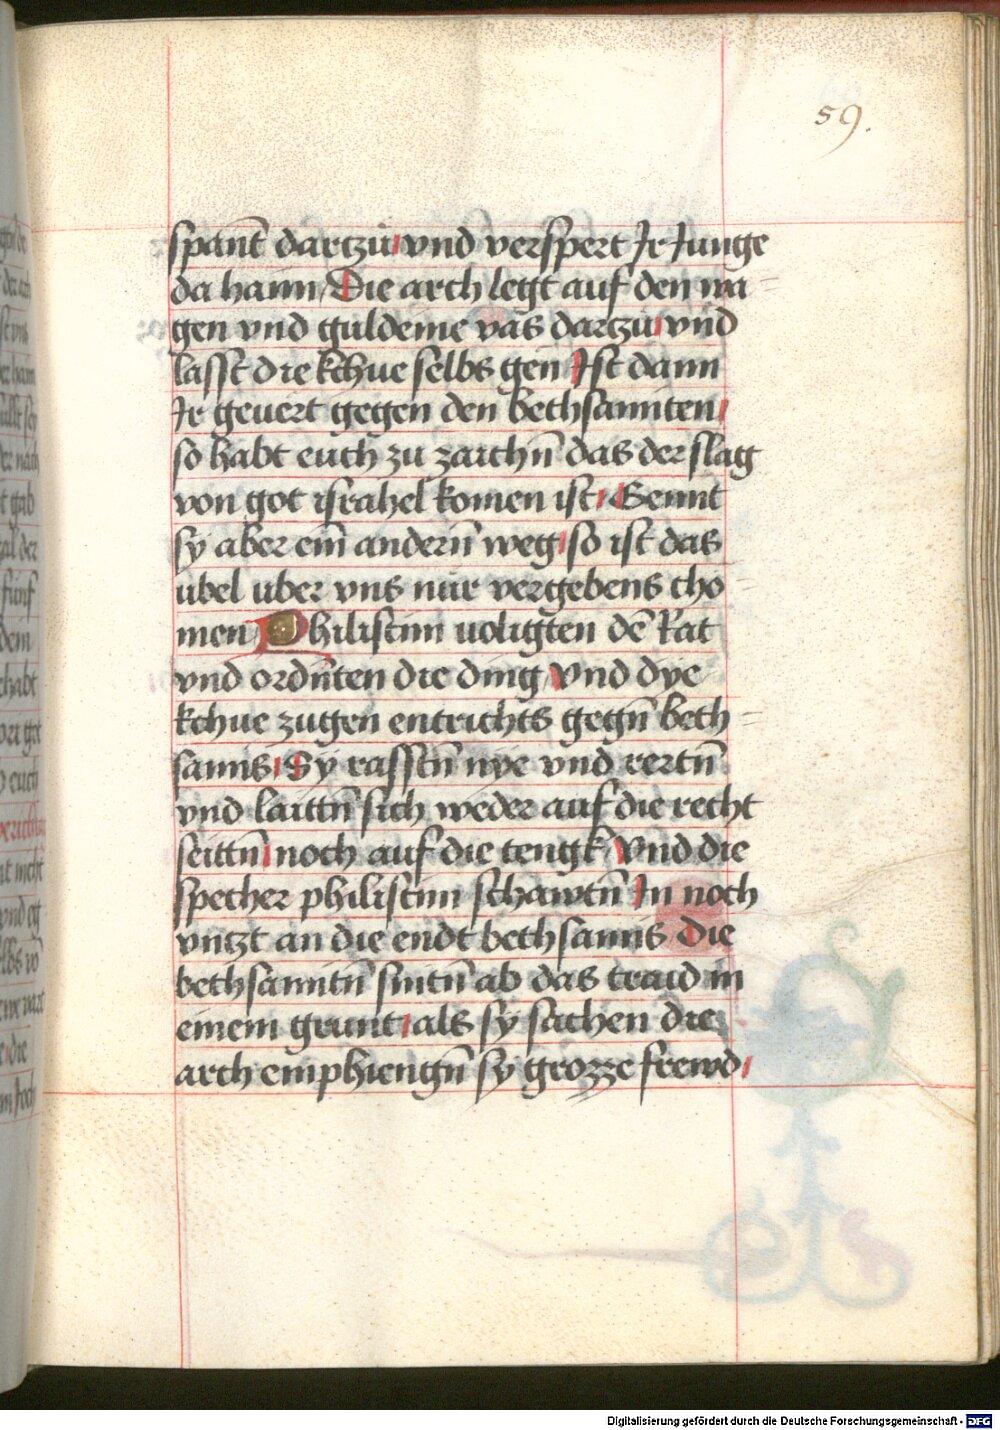 59.
spant̄ dartzu vnd verspert Ir Junge
da haim Die arch legt auf den wa=
gen vnd guldeine vas dartzu vnd
lasst die kchue selbs gen Ist dann
Ir geuert gegen den bethsamiten
so habt euch zu zaichn̄ das der slag
von got israhel komen ist Gennt
sy aber ein̄ andern̄ weg so ist das
ubel uber vns nur vergebens cho=
men Philistiim uoligten dē Rat
vnd ordn̄ten die ding Vnd dye
kchue zugen entrichts gegn̄ beth=
samis Sy rasstn̄ nye vnd rertn̄
vnd laittn̄ sich weder auf die recht
seittn̄ noch auf die tengk Vnd die
specher philistiim schawtn̄ In noch
vntzt an die endt bethsamis Die
bethsamitn̄ snitn̄ ab das traid in
einem grunt als sy sachen die
arch emphiengn̄ sy grozze frewd
Digitalisierung gefördert durch die Deutsche Forschungsgemeinschaft - DFG